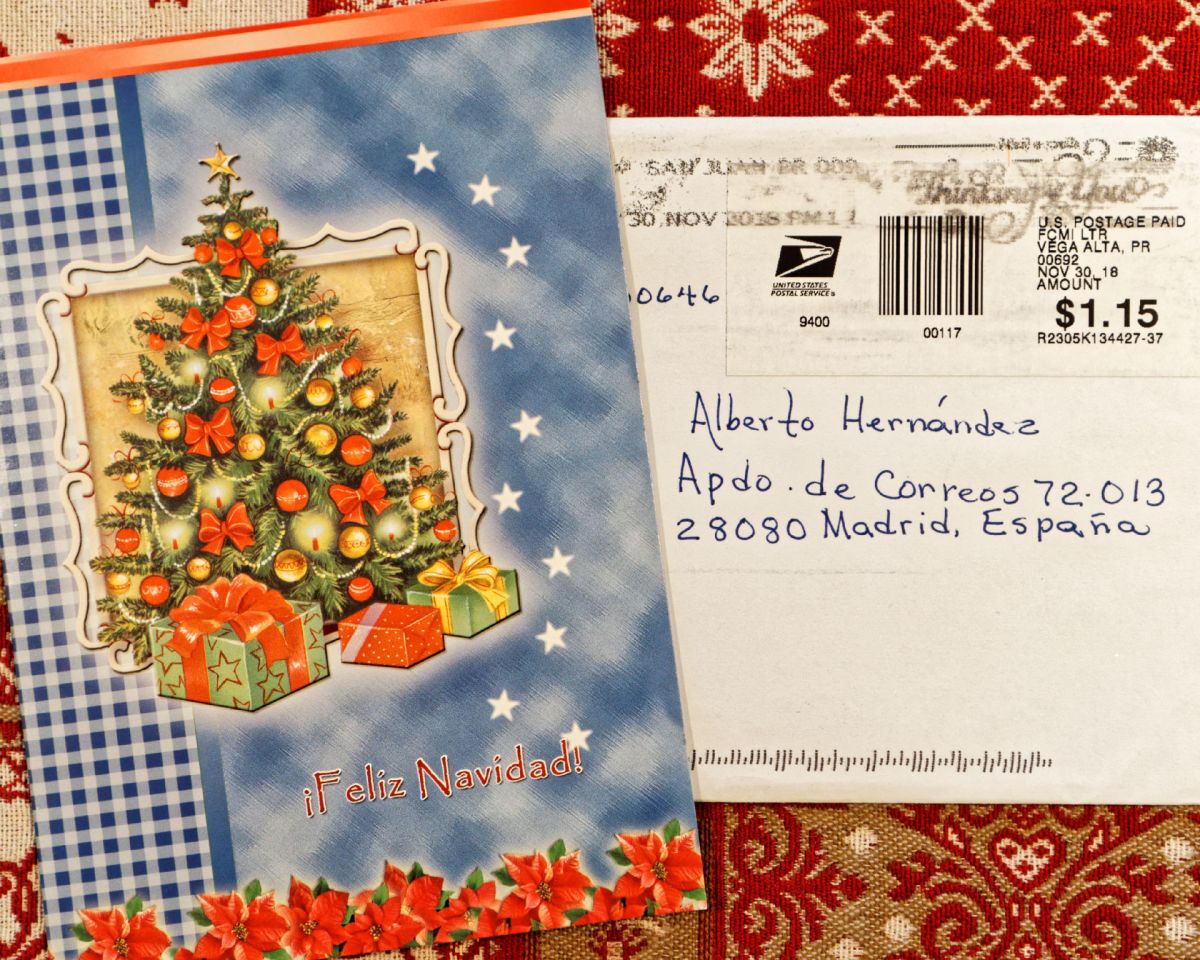 ¡Feliz Navidad!
SAN JUAN PR 009
30 NOV 2018 PM 1 L
Thinking of You
00646
UNITED STATES
POSTAL SERVICE®
9400
00117
U.S. POSTAGE PAID
FCMI LTR
VEGA ALTA, PR
00692
NOV 30, 18
AMOUNT
$1.15
R2305K134427-37
Alberto Hernández
Apdo. de Correos 72-013
28080 Madrid, España